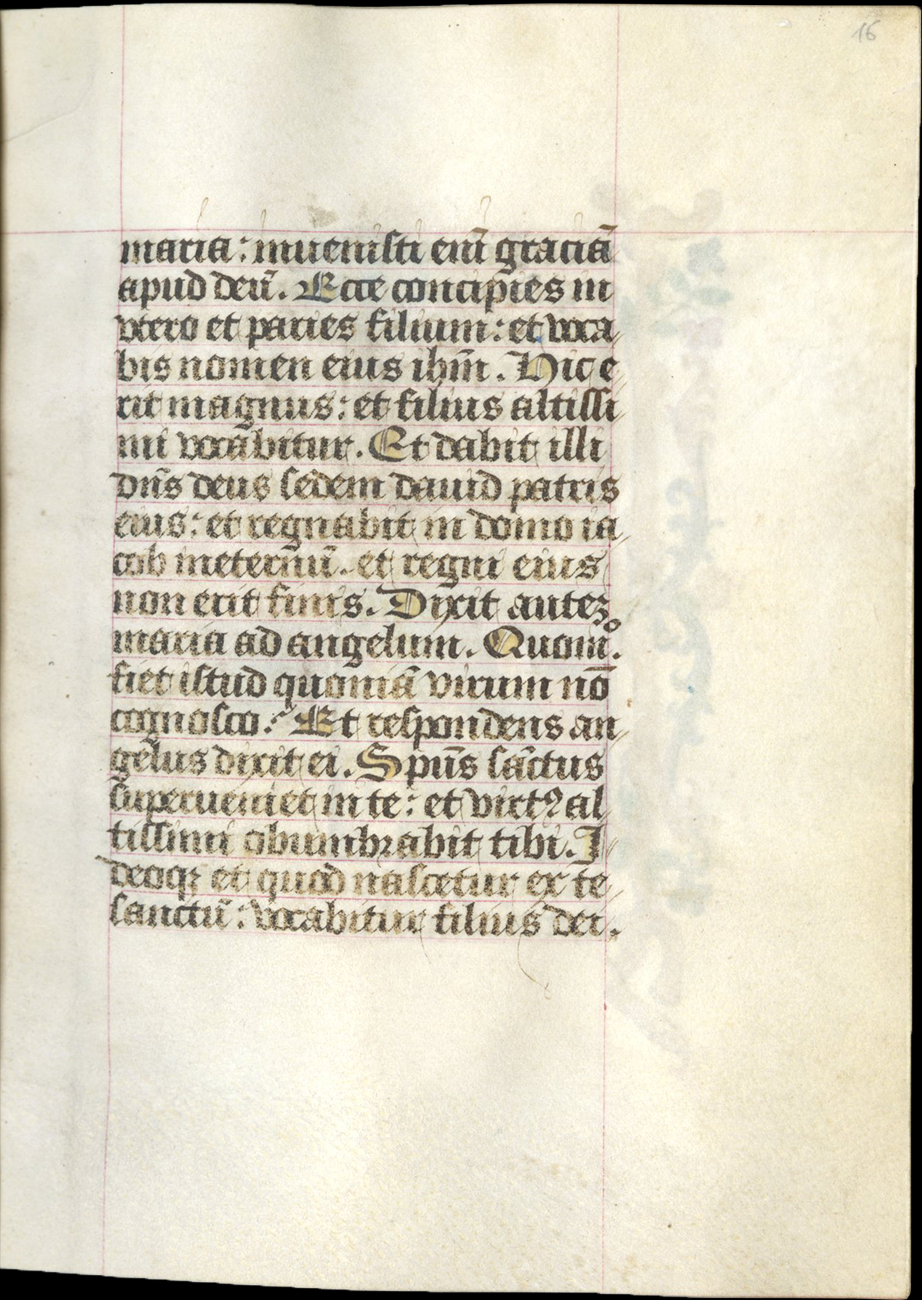 16
maria: inuenisti eni̅ graciā
apud deū. Ecce concipies in
vtero et paries filium: et voca
bis nomen eius ihm̄. Hic e
rit magnus: et filius altissi
mi vocabitur. Et dabit illi
dn̄s deus sedem dauid patris
eius: et regnabit in domo ia
cob ineternū. et regni eius
non erit finis. Dixit autez
maria ad angelum. Quomͦ.
fiet istud quoniā virum nō
cognosco: Et respondens an
gelus dixit ei. Spūs sāctus
superueniet in te: et virtꝰ al
tissimi obumbrabit tibi. I
deoqꝫ et quod nascetur ex te
sanctū: vocabitur filius dei.